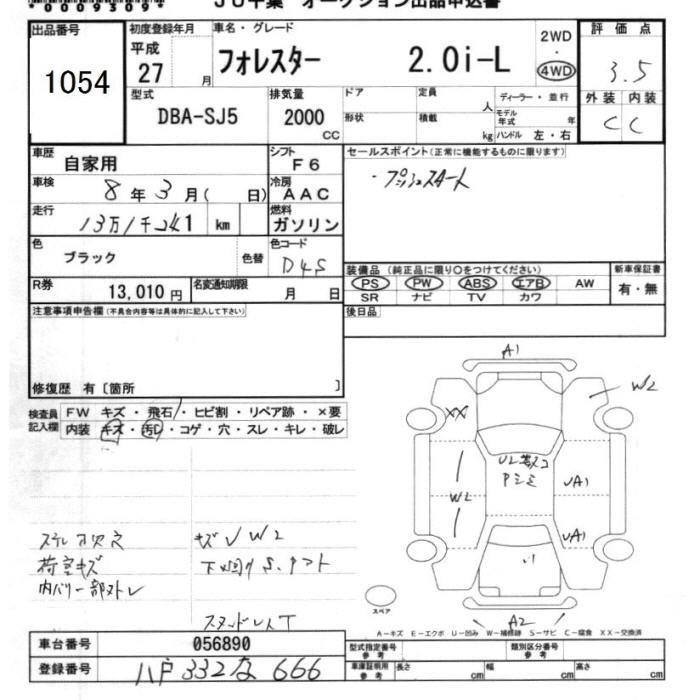 *00093099*
JU千葉 オークション出品申込書
出品番号
1054
初度登録年月
平成
27 月
車名・グレード
フォレスター 2.0i-L
2WD
・
4WD
評価点
3.5
外装 内装
C C
型式
DBA-SJ5
排気量
2000
CC
ドア
定員
人
形状
積載
kg
ディーラー・並行
モデル年式 年
ハンドル 左・右
車歴
自家用
シフト
F6
セールスポイント(正常に機能するものに限ります)
・プッシュスタート
車検
8年3月( 日)
冷房
AAC
走行
km
燃料
ガソリン
色
ブラック
色替
色コード
D4S
装備品(純正品に限り○をつけてください)
PS PW ABS エアB AW
SR ナビ TV カワ
新車保証書
有・無
R券
13,010円
名変通知期限
月 日
後日品
注意事項申告欄(不具合内容等は具体的に記入して下さい)
修復歴 有〔箇所 〕
検査員記入欄
FW キズ・飛石・ヒビ割・リペア跡・×要
内装 キズ・汚し・コゲ・穴・スレ・キレ・破レ
A1
W2
XX
W2
UA1
UA1
A2
スペア
荷室キズ
キズ W2
下回りS、
A-キズ E-エクボ U-凹み W-補修跡 S-サビ C-腐食 XX-交換済
車台番号
056890
型式指定番号
参考
類別区分番号
参考
登録番号
八戸 332 な 666
車庫証明用
参考
長さ cm 幅 cm 高さ cm